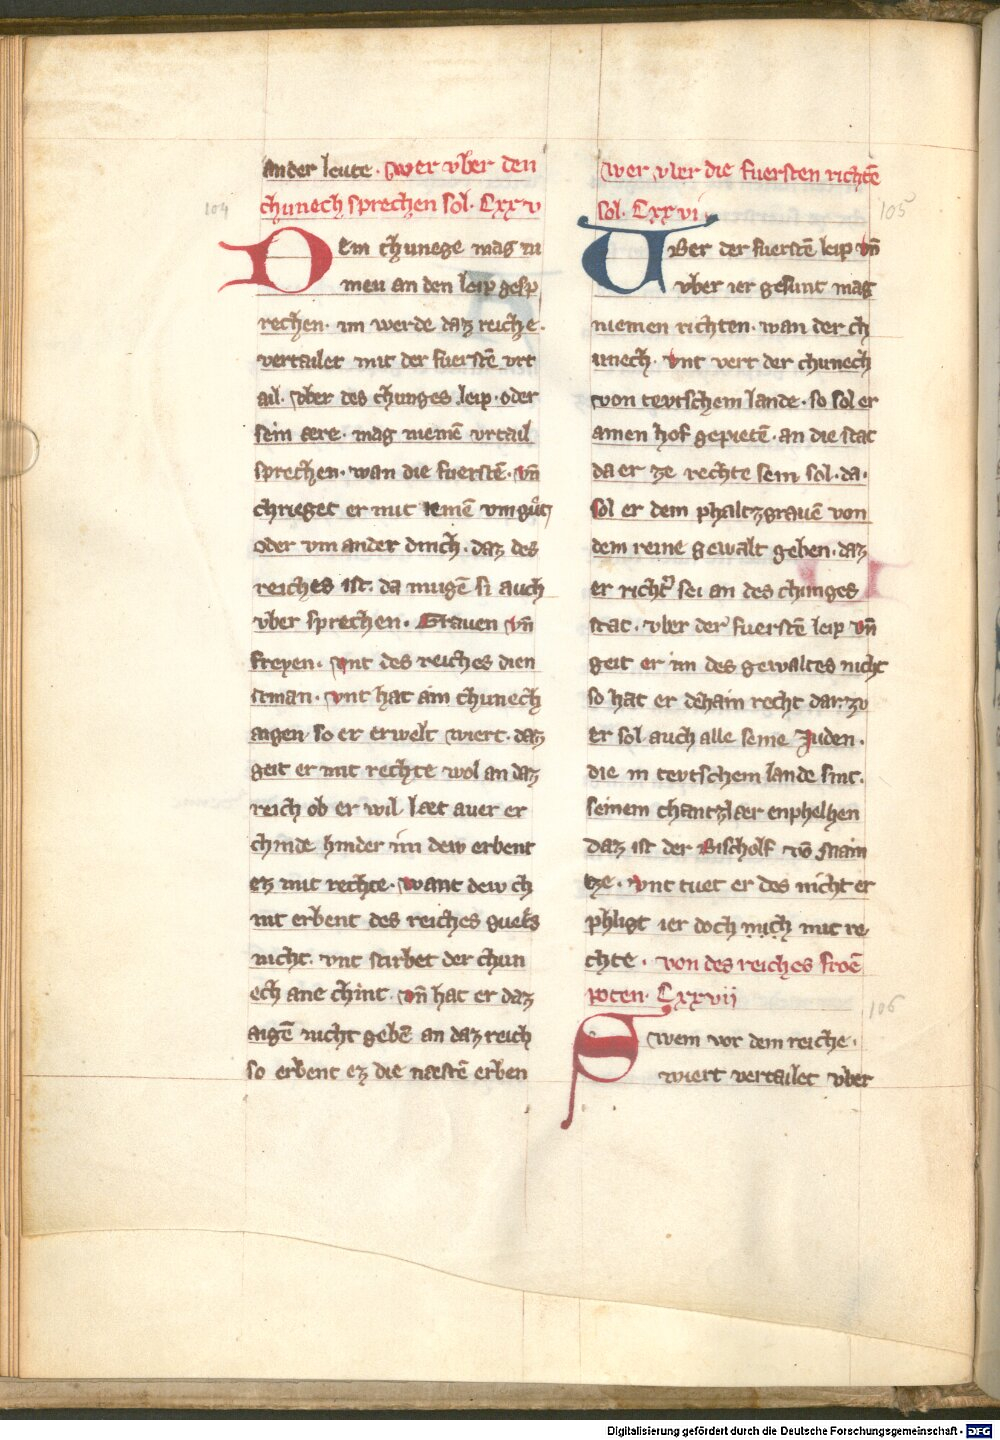 ander leute. Swer vber den
chunech sprechen sol. Cxxv
104
Dem chunege mag ni
men an den leip gesp
rechen. im werde daz reiche.
vertailet mit der fuerstē vrt
ail. vber des chunges leip. oder
sein ere. mag niemē vrtail
sprechen. wan die fuerstē. vn̄
chrieget er mit iemē vm guͦt
oder vm ander dinch. daz des
reiches ist. da mugē si auch
vber sprechen. Grauen vn̄
freyen. vnt des reiches dien
stman. vnt hat ain chunech
aigen so er erwelt wiert. daz
geit er mit rechte wol an daz
reich ob er wil læt auer er
chinde hinder im dew erbent
ez mit rechte. want dew ch
int erbent des reiches guets
nicht. vnt stirbet der chun
ech ane chint. vn̄ hat er daz
aigē nicht gebē an daz reich
so erbent ez die næstē erben
wer vber die fuersten richtē
sol. Cxxvi
105
Uber der fuerstē leip vn̄
vber ier gesunt mag
niemen richten. wan der ch
unech. vnt vert der chunech
von tevtschem lande. so sol er
ainen hof gepietē. an die stat
da er ze rechte sein sol. da.
sol er dem phaltzgrauē von
dem reine gewalt geben. daz
er richt̾ sei an des chunges
stat. vber der fuerstē leip vn̄
geit er im des gewaltes nicht
so hat er dehain recht darzv
er sol auch alle seine Juden.
die in tevtschem lande sint.
seinem chantzlær enphelhen
Daz ist der Bischolf vō Main
tze. vnt tuet er des nicht er
phligt ier doch mich mit re
chte. von des reiches froē
poten. Cxxvii
106
Swem vor dem reiche.
wiert vertailet vber
Digitalisierung gefördert durch die Deutsche Forschungsgemeinschaft - DFG